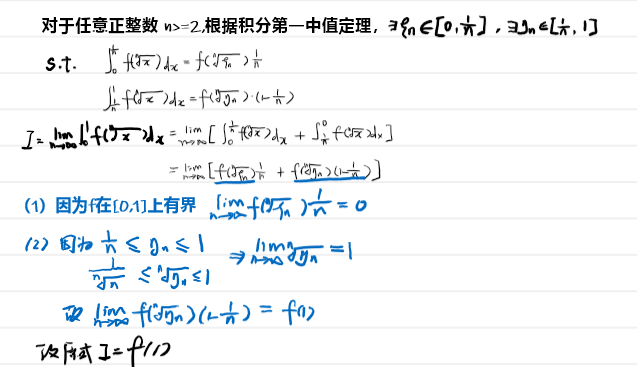 对于任意正整数 n>=2,根据积分第一中值定理，∃ξₙ∈[0,1/n]，∃yₙ∈[1/n,1]
s.t. ∫₀^{1/n} f(ⁿ√x)dx = f(ⁿ√ξₙ) 1/n
∫_{1/n}^1 f(ⁿ√x)dx = f(ⁿ√yₙ)·(1-1/n)
I = lim_{n→∞} ∫₀¹ f(ⁿ√x)dx = lim_{n→∞} [∫₀^{1/n} f(ⁿ√x)dx + ∫_{1/n}^0 f(ⁿ√x)dx]
= lim_{n→∞} [f(ⁿ√ξₙ) 1/n + f(ⁿ√yₙ)(1-1/n)]
(1) 因为f在[0,1]上有界 lim_{n→∞} f(ⁿ√ξₙ) 1/n = 0
(2) 因为 1/n ≤ yₙ ≤ 1 ⇒ lim_{n→∞} ⁿ√yₙ = 1
1/ⁿ√n ≤ ⁿ√yₙ ≤ 1
故 lim_{n→∞} f(ⁿ√yₙ)(1-1/n) = f(1)
故原式 I = f(1)